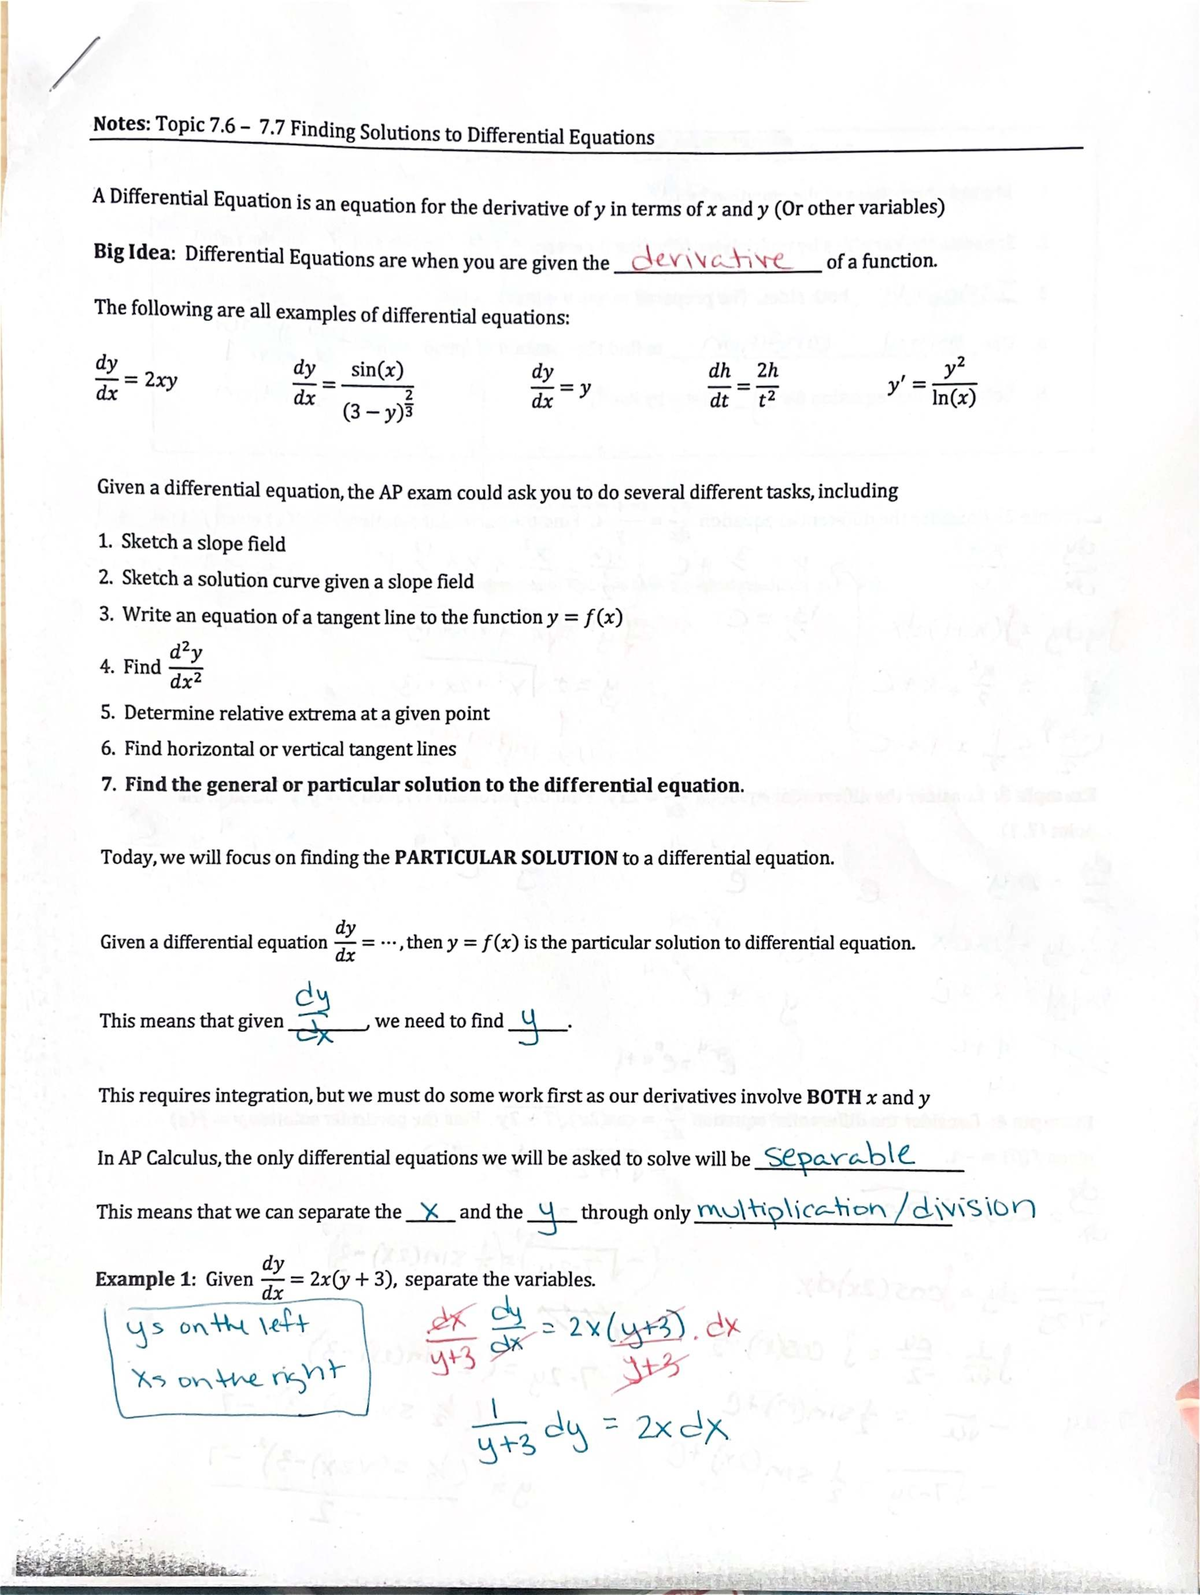 Notes: Topic 7.6 – 7.7 Finding Solutions to Differential Equations
A Differential Equation is an equation for the derivative of y in terms of x and y (Or other variables)
Big Idea: Differential Equations are when you are given the derivative of a function.
The following are all examples of differential equations:
dy/dx = 2xy   dy/dx = sin(x)/(3 – y)^(2/3)   dy/dx = y   dh/dt = 2h/t²   y′ = y²/ln(x)
Given a differential equation, the AP exam could ask you to do several different tasks, including
1. Sketch a slope field
2. Sketch a solution curve given a slope field
3. Write an equation of a tangent line to the function y = f(x)
4. Find d²y/dx²
5. Determine relative extrema at a given point
6. Find horizontal or vertical tangent lines
7. Find the general or particular solution to the differential equation.
Today, we will focus on finding the PARTICULAR SOLUTION to a differential equation.
Given a differential equation dy/dx = ⋯, then y = f(x) is the particular solution to differential equation.
This means that given dy/dx, we need to find y.
This requires integration, but we must do some work first as our derivatives involve BOTH x and y
In AP Calculus, the only differential equations we will be asked to solve will be separable
This means that we can separate the x and the y through only multiplication / division
Example 1: Given dy/dx = 2x(y + 3), separate the variables.
ys on the left
xs on the right
dx/y+3 dy/dx = 2x(y+3)/y+3 . dx
1/y+3 dy = 2x dx